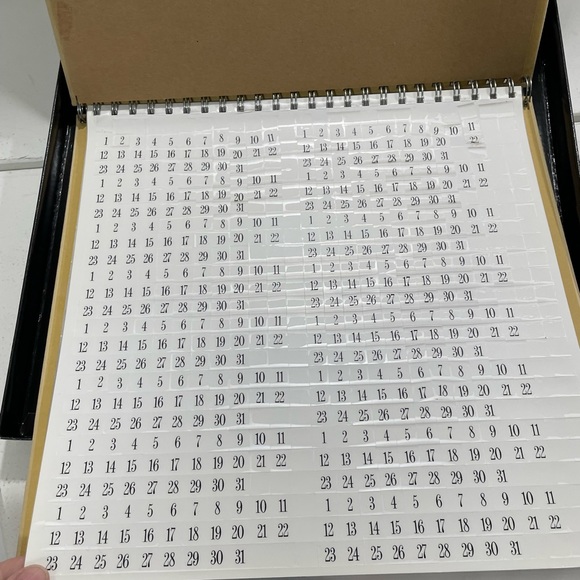 1 2 3 4 5 6 7 8 9 10 11
12 13 14 15 16 17 18 19 20 21 22
23 24 25 26 27 28 29 30 31
1 2 3 4 5 6 7 8 9 10 11
12 13 14 15 16 17 18 19 20 21 22
23 24 25 26 27 28 29 30 31
1 2 3 4 5 6 7 8 9 10 11
12 13 14 15 16 17 18 19 20 21 22
23 24 25 26 27 28 29 30 31
1 2 3 4 5 6 7 8 9 10 11
12 13 14 15 16 17 18 19 20 21 22
23 24 25 26 27 28 29 30 31
1 2 3 4 5 6 7 8 9 10 11
12 13 14 15 16 17 18 19 20 21 22
23 24 25 26 27 28 29 30 31
1 2 3 4 5 6 7 8 9 10 11
12 13 14 15 16 17 18 19 20 21 22
23 24 25 26 27 28 29 30 31
1 2 3 4 5 6 7 8 9 10 11
12 13 14 15 16 17 18 19 20 21 22
23 24 25 26 27 28 29 30 31
1 2 3 4 5 6 7 8 9 10 11
12 13 14 15 16 17 18 19 20 21 22
23 24 25 26 27 28 29 30 31
1 2 3 4 5 6 7 8 9 10 11
12 13 14 15 16 17 18 19 20 22
23 24 25 26 27 28 29 30 31
1 2 3 4 5 6 7 8 9 10 11
12 13 14 15 16 17 18 19 20 21 22
23 24 25 26 27 28 29 30 31
1 2 3 4 5 6 7 8 9 10 11
12 13 14 15 16 17 18 19 20 21 22
23 24 25 26 27 28 29 30 31
1 2 3 4 5 6 7 8 9 10 11
12 13 14 15 16 17 18 19 20 21 22
23 24 25 26 27 28 29 30 31
1 2 3 4 5 6 7 8 9 10 11
12 13 14 15 16 17 18 19 20 21 22
23 24 25 26 27 28 29 30 31
1 2 3 4 5 6 7 8 9 10 11
12 13 14 15 16 17 18 19 20 21 22
23 24 25 26 27 28 29 30 31
1 2 3 4 5 6 7 8 9 10 11
12 13 14 15 16 17 18 19 20 21 22
23 24 25 26 27 28 29 30 31
1 2 3 4 5 6 7 8 9 10 11
12 13 14 15 16 17 18 19 20 21 22
23 24 25 26 27 28 29 30 31